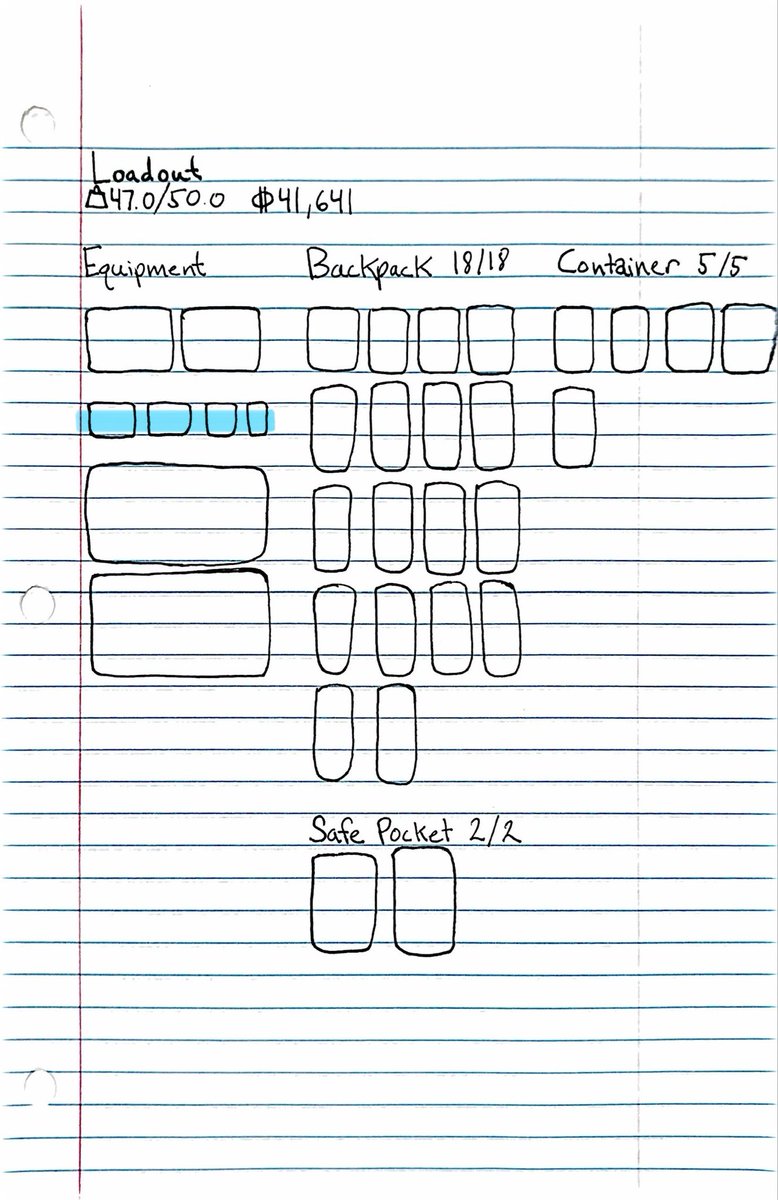 Loadout
47.0/50.0 $41,641
Equipment
Backpack 18/18
Container 5/5
Safe Pocket 2/2